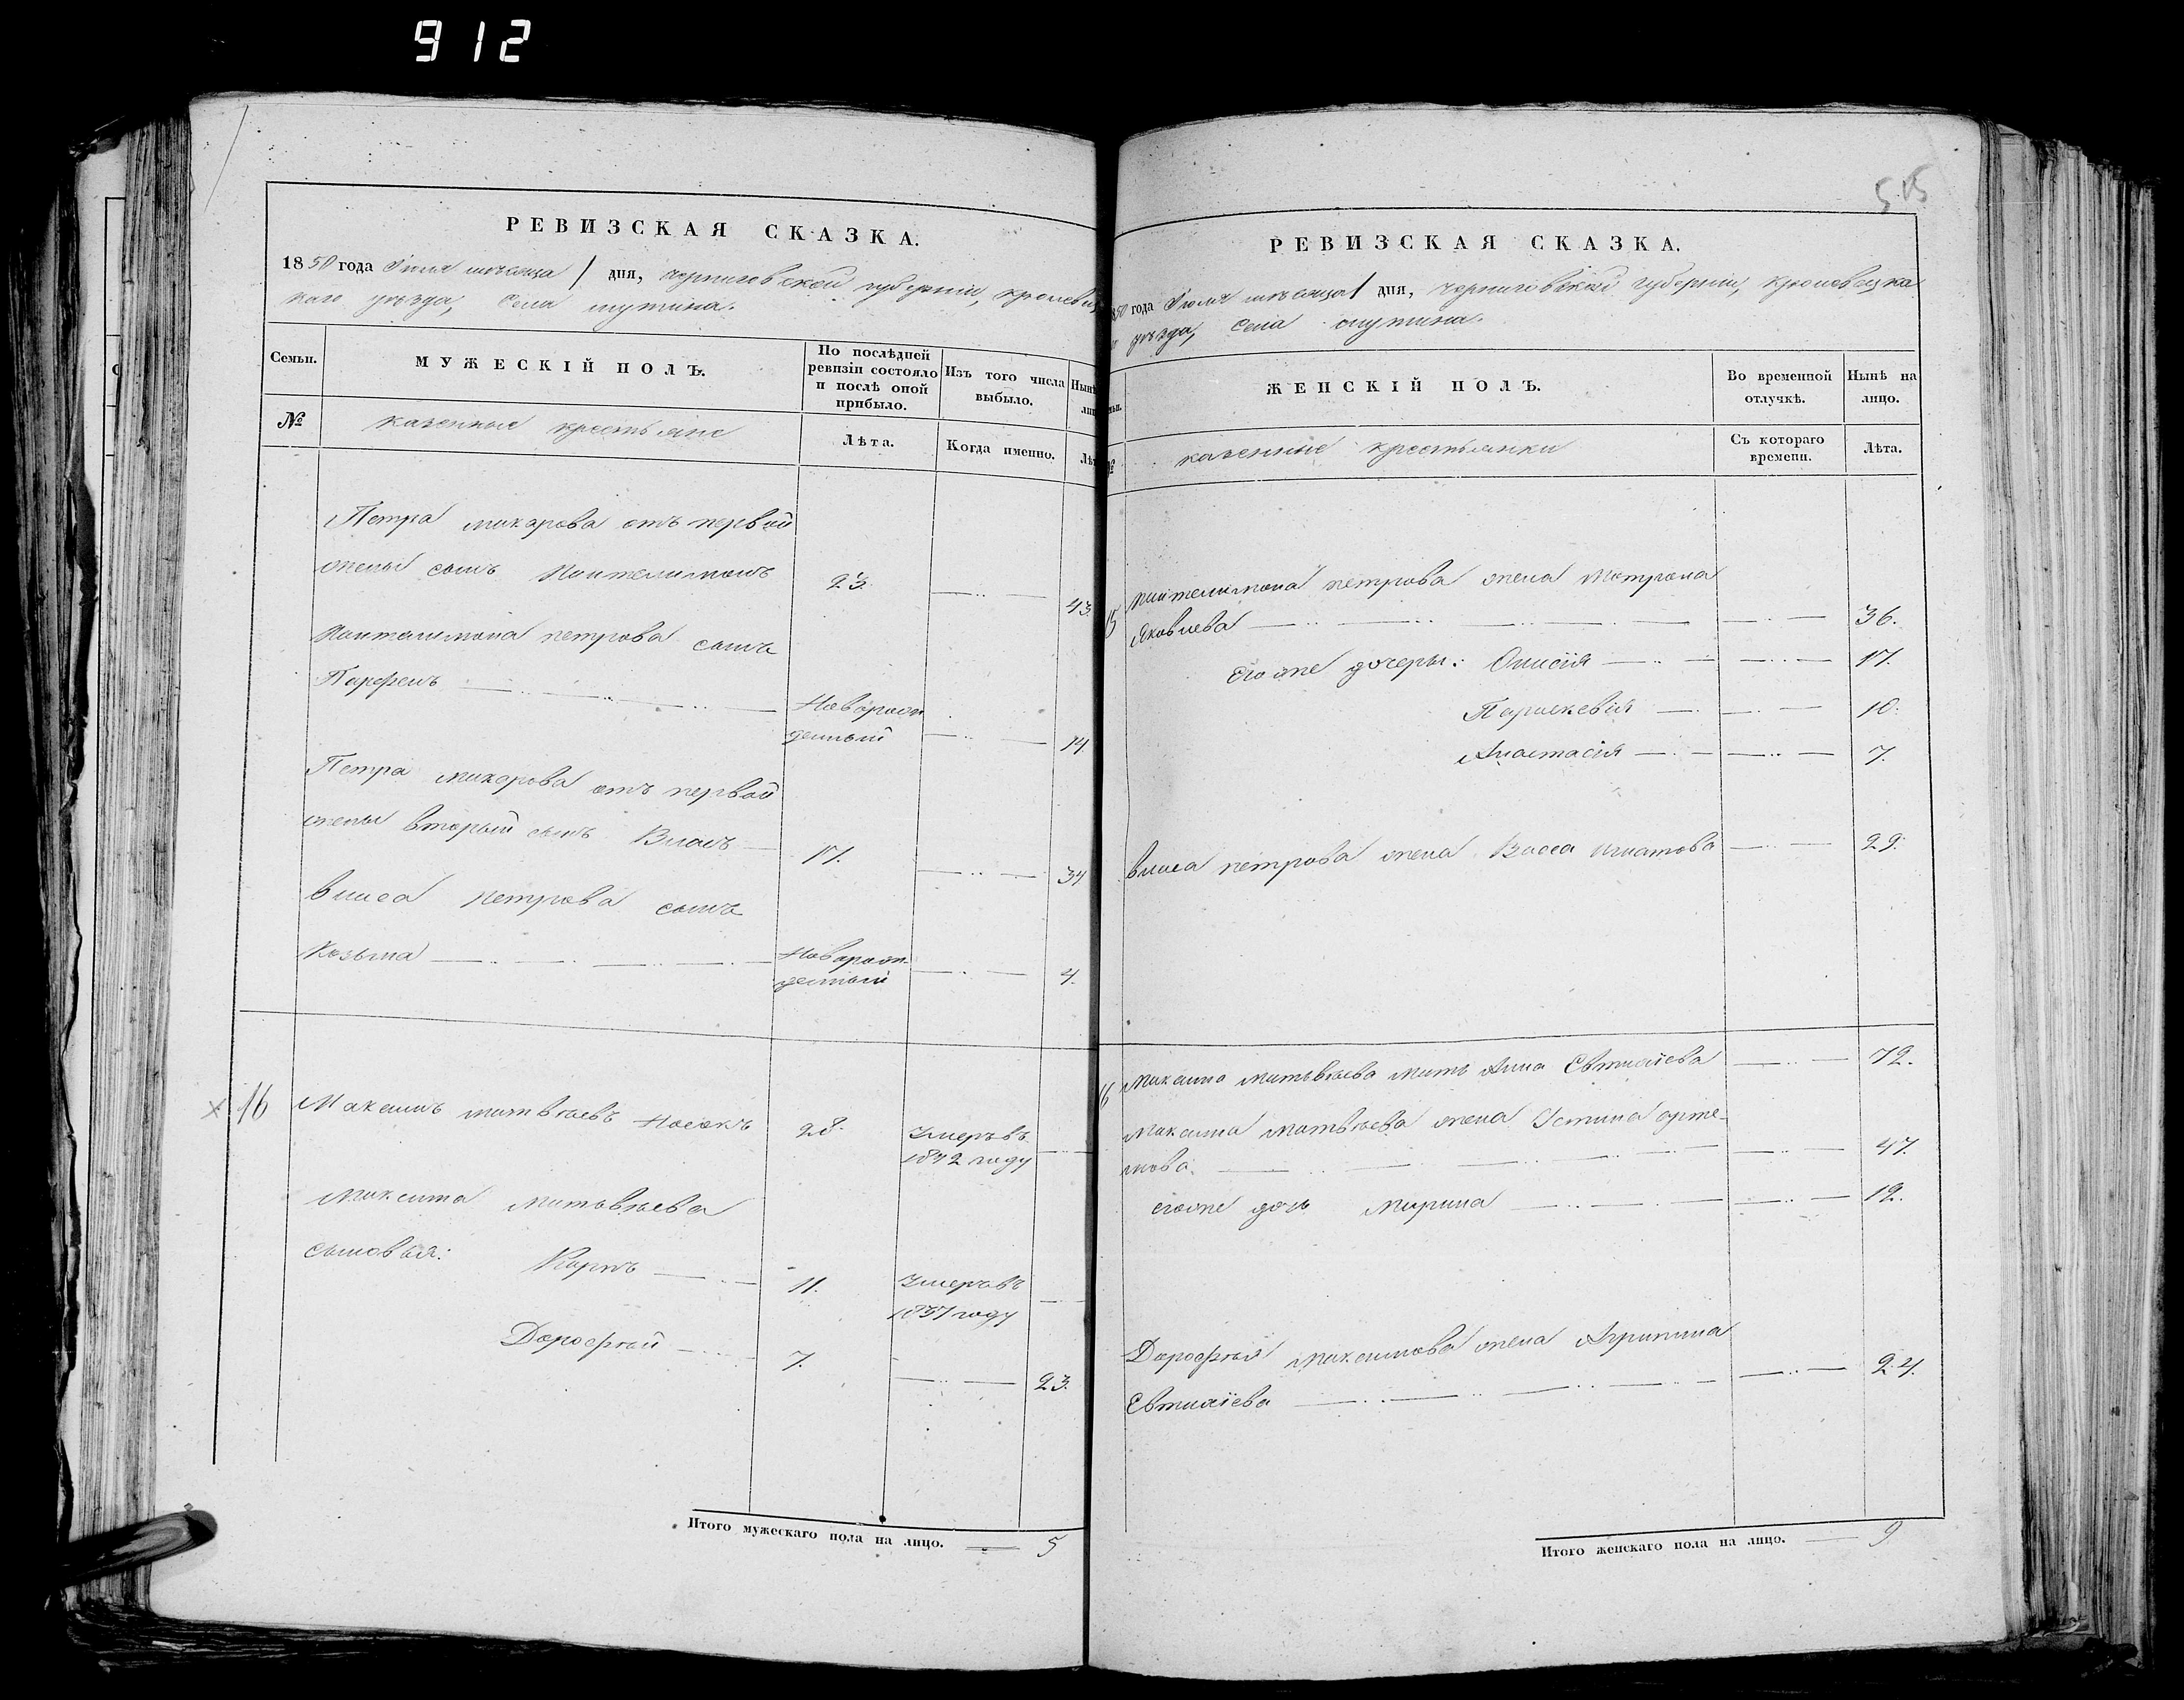 912
РЕВИЗСКАЯ СКАЗКА.
1850 года Іюля мѣсяца 1 дня, черниговской губерніи, кролевец
каго уѣзда, села
Семьи.
МУЖЕСКІЙ ПОЛЪ.
По послѣдней
ревизіи состояло
и послѣ оной
прибыло.
Изъ того числа
выбыло.
Нынѣ
лиц
№
казенные крестьяне
Лѣта.
Когда именно.
Лѣт
Петра макарова отъ первой
жены сынъ Пантелимонъ 23. 43.
Пантелимона петрова сынъ
Парфенъ Наворож
денный 14
Петра макарова отъ первой
жены вторый сынъ Власъ 17. 34
власа петрова сынъ
Козьма Новорож
денный 4.
16 Максимъ матвѣевъ Носокъ 28. Умеръ въ
1842 году
Максима матвѣева
сыновья: Карпъ 11. Умеръ въ
1837 году
Дорофѣй 7. 23.
Итого мужескаго пола на лицо. 5
515
РЕВИЗСКАЯ СКАЗКА.
850 года Іюля мѣсяца 1 дня, черниговской губерніи, кролевецка
уѣзда, села
мьи.
ЖЕНСКІЙ ПОЛЪ.
Во временной
отлучкѣ.
Нынѣ на
лицо.
№
казенные крестьянки
Съ котораго
времени.
Лѣта.
15 пантелимона петрова жена Матрона
Яковлева 36.
Его же дочеры: Анисія 17.
Параскевія 10.
Анастасія 7.
власа петрова жена Васса игнатова 29.
16 Максима матвѣева мать Анна Евтихіева 72.
Максима матвѣева жена Устина арте-
мова. 47.
его же дочь Марина 12.
Дорофѣя максимова жена Агрипина
Евтихіева 24.
Итого женскаго пола на лицо. 9